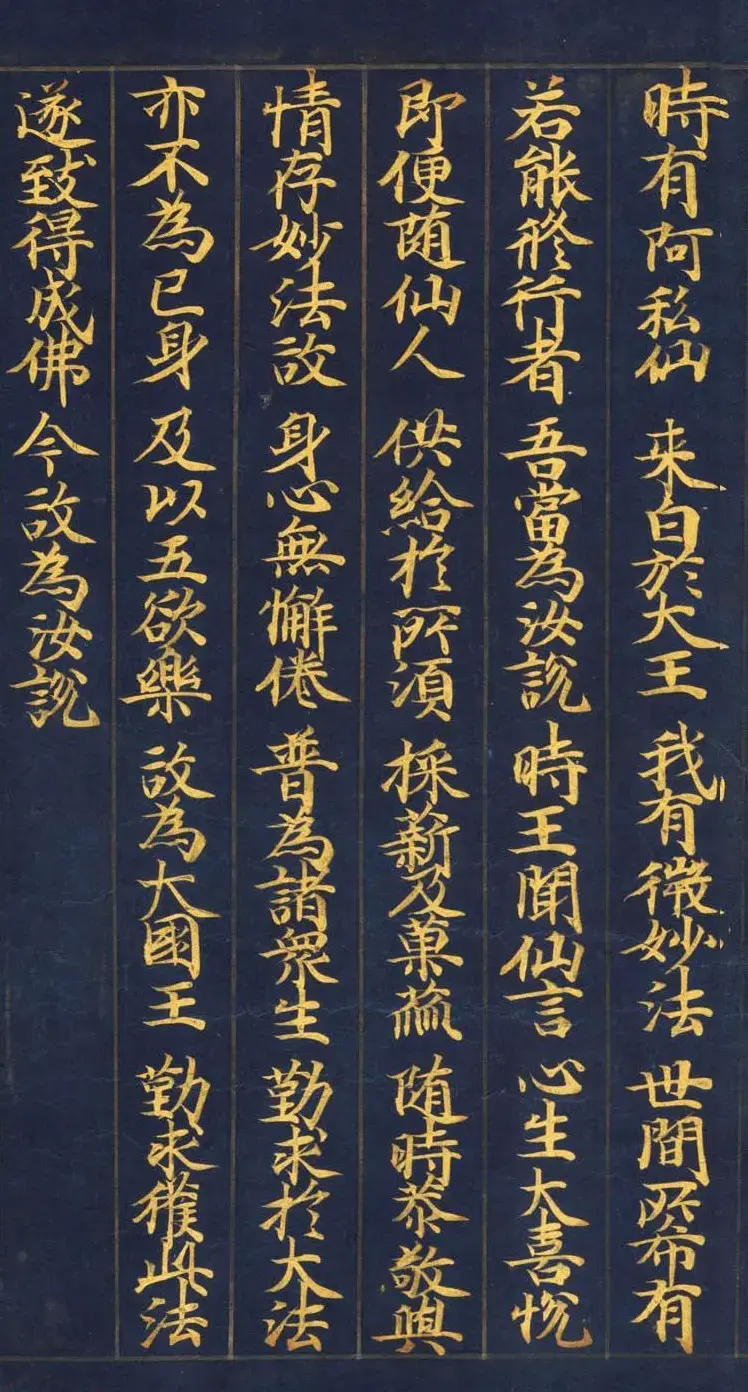 時有阿私仙 来白於大王 我有微妙法 世間所希有
若能修行者 吾當為汝說 時王聞仙言 心生大喜悅
即便随仙人 供給於所須 採薪及菓蓏 随時恭敬與
情存妙法故 身心無懈倦 普為諸眾生 勤求於大法
亦不為已身 及以五欲樂 故為大國王 勤求獲此法
遂致得成佛 今故為汝說